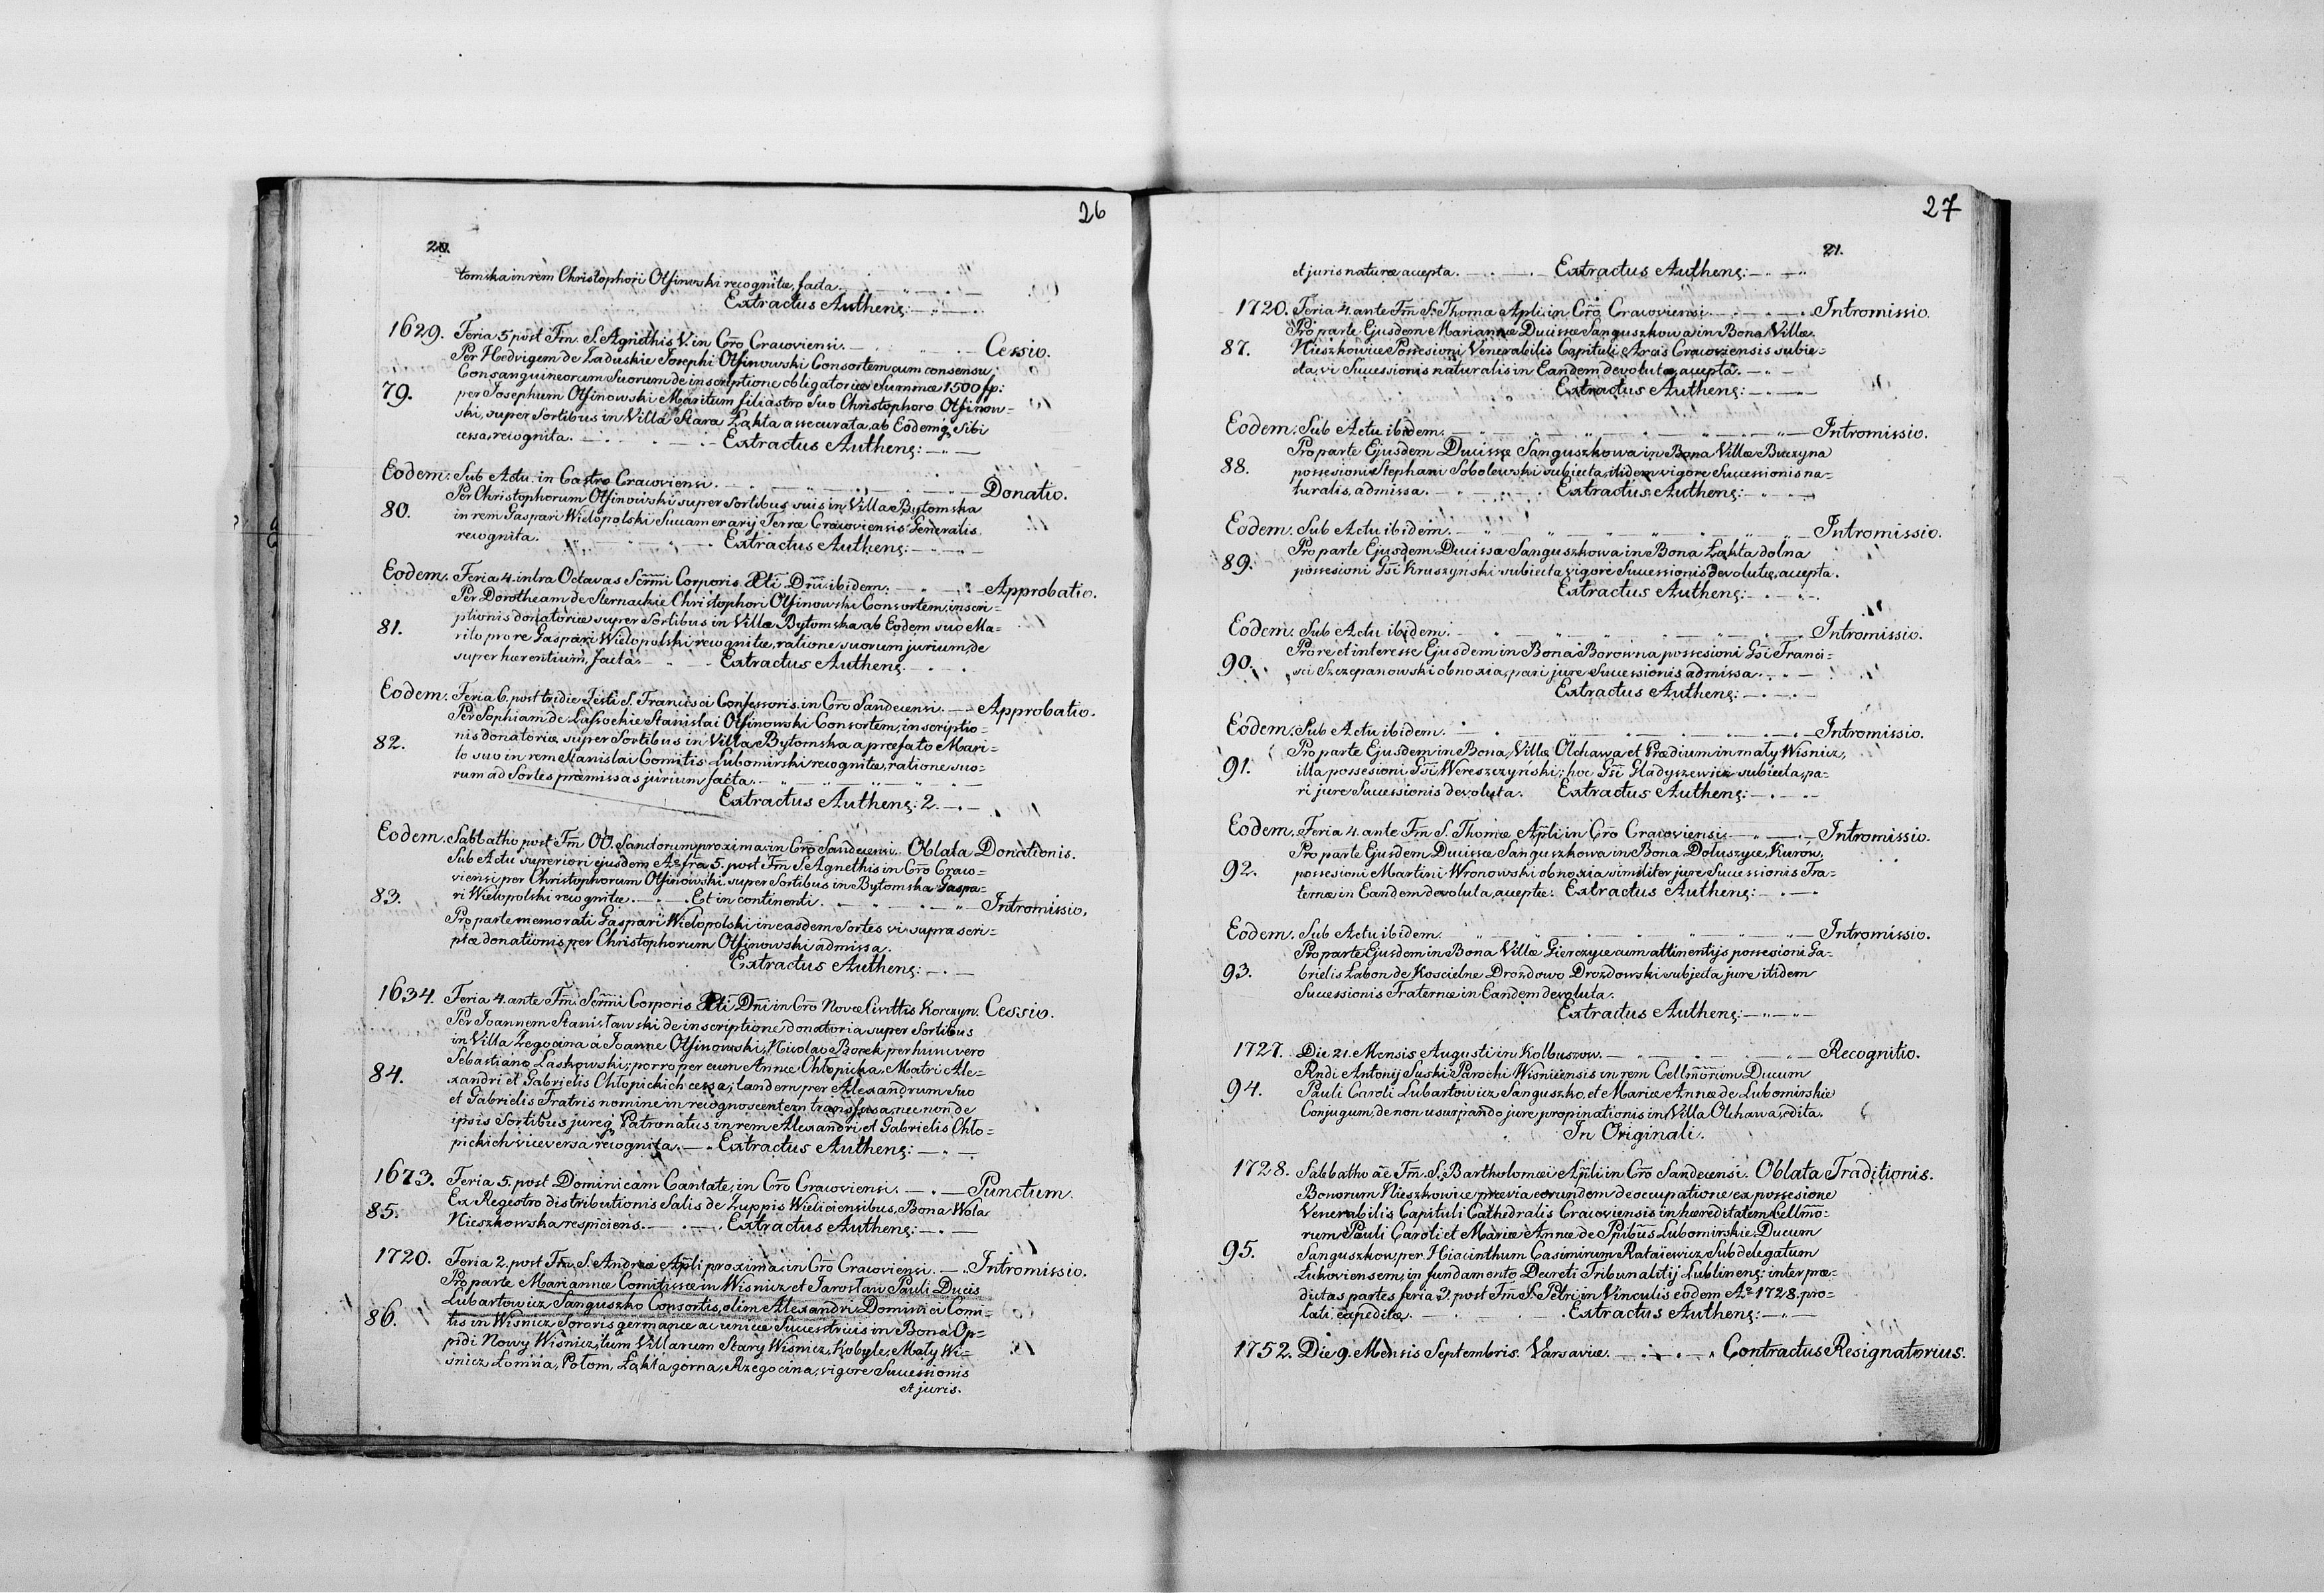 26
20.
tomska in rem Christophori Olsinowski recognitæ, facta.
Extractus Authens:
1629. Feria 5. post Fm. S. Agnethis V. in Cro Cracoviensi. Cessio.
Per Hedvigem de Zaduskie Josephi Olsinowski Consortem cum consensu
Consanguineorum Suorum de inscriptione obligatoriæ Summæ 1500 fp:
79. per Josephum Olsinowski Maritum filiastro Suo Christophoro Olsinow=
ski, super Sortibus in Villa Stara Łąkta assecurata, ab Eodemq Sibi
cessa, recognita. Extractus Authens:
Eodem. Sub Actu. in Castro Cracoviensi. Donatio.
Per Christophorum Olsinowski super Sortibus suis in Villa Bytomska
80. in rem Gaspari Wielopolski Succamerary Terræ Cracoviensis Generalis.
recognita. Extractus Authens:
Eodem. Feria 4. intra Octavas Scrmi Corporis Xti Dni ibidem. Approbatio.
Per Dorotheam de Sternackie Christophori Olsinowski Consortem, inscri=
ptionis donatoriæ super Sortibus in Villa Bytomska ab Eodem suo Ma=
81. rito pro re Gaspari Wielopolski recognitæ, ratione suorum jurium, de
super hærentium, facta. Extractus Authens.
Eodem. Feria 6. post tridie Festi S. Francisci Confessoris. in Cro Sandecensi. Approbatio.
Per Sophiam de Lassockie Stanislai Olsinowski Consortem, inscriptio=
nis donatoriæ super Sortibus in Villa Bytomska a præfato Mari=
82. to suo in rem Stanislai Comitis Lubomirski recognitæ, ratione suo=
rum ad Sortes præmissas jurium facta.
Extractus Authens: 2.
Eodem. Sabbatho post Fm OO. Sanctorum proximo in Cro Sandecensi. Oblata Donationis.
Sub Actu superiori ejusdem Ao fra 5. post Fm S. Agnethis in Cro Craco=
viensi per Christophorum Olsinowski super Sortibus in Bytomska Gaspa=
83. ri Wielopolski recognitæ. Et in continenti. Intromissio.
Pro parte memorati Gaspari Wielopolski in easdem Sortes vi supra scri=
ptæ donationis, per Christophorum Olsinowski admissa.
Extractus Authens:
1634. Feria 4. ante Fm. Scrmi Corporis Xti Dni in Cro Novæ Civittis Korczyn. Cessio.
Per Joannem Stanisławski de inscriptione donatoria super Sortibus
in Villa Zegocina a Joanne Olsinowski, Nicolao Borek per hunc vero
Sebastiano Laskowski; porro per eum Annæ Chłopicka, Matri Ale=
84. xandri et Gabrielis Chłopickich cessa; tandem per Alexandrum Suo
et Gabrielis Fratris nomine in recognoscentem transfusa, nec non de
ipsis Sortibus jureq Patronatus in rem Alexandri et Gabrielis Chło=
pickich vice versa recognita. Extractus Authens:
1673. Feria 5. post Dominicam Cantate, in Cro Cracoviensi. Punctum.
Ex Regestro distributionis Salis de Zuppis Wieliciensibus, Bona Wola
85. Nieszkowska respiciens. Extractus Authens:
1720. Feria 2. post Fm. S. Andreæ Apli proxima in Cro Cracoviensi. Intromissio.
Pro parte Mariannæ Comitissæ in Wisnicz et Jarosław Pauli Ducis
Lubartowicz Sanguszko Consortis, olim Alexandri Dominici Comi=
86. tis in Wisnicz Sororis germanæ ac unicæ Successtricis in Bona Op=
pidi Nowy Wisnicz, tum Villarum Stary Wisnicz, Kobyle, Mały Wi=
snicz, Łomna, Połom, Łąkta gorna, Rzegocina, vigore Successionis
et juris.
27
21.
et juris naturæ accepta. Extractus Authens:
1720. Feria 4. ante Fm S. Thomæ Apli. in Cro Cracoviensi. Intromissio.
Pro parte Ejusdem Mariannæ Ducissæ Sanguszkowa in Bona Villæ
87. Nieszkowice Possesioni Venerabilis Capituli Arcis Cracoviensis subie=
cta, vi Successionis naturalis in Eandem devoluta, accepta.
Extractus Authens:
Eodem. Sub Actu ibidem. Intromissio.
Pro parte Ejusdem Ducissæ Sanguszkowa in Bona Villæ Buczyna
88. possesioni Stephani Sobolewski subiecta, itidem vigore Successionis na=
turalis, admissa. Extractus Authens:
Eodem. Sub Actu ibidem. Intromissio.
Pro parte Ejusdem Ducissæ Sanguszkowa in Bona Łąkta dolna
89. possesioni Gsi Kruszyński subiecta, vigore Successionis devoluta, accepta.
Extractus Authens:
Eodem. Sub Actu ibidem. Intromissio.
Pro re et interesse Ejusdem in Bona Borowna possesioni Gsi Franci=
90. sci Szczepanowski obnoxia, pari jure Successionis admissa.
Extractus Authens:
Eodem. Sub Actu ibidem. Intromissio.
Pro parte Ejusdem in Bona, Villæ Olchawa et Prædium in mały Wisnicz,
91. illa possesioni Gsi Wereszczyński; hoc Gsi Gładyszewicz subiecta, pa=
ri jure Successionis devoluta. Extractus Authens:
Eodem. Feria 4. ante Fm S. Thomæ Apli in Cro Cracoviensi. Intromissio.
Pro parte Ejusdem Ducissæ Sanguszkowa in Bona Dołuszyce, Kurów,
92. possesioni Martini Wronowski obnoxia, similiter jure Successionis Fra=
ternæ in Eandem devoluta, acceptæ. Extractus Authens:
Eodem. Sub Actu ibidem. Intromissio.
Pro parte Ejusdem in Bona Villæ Gierczyce cum attinentijs possesioni Ga=
93. brielis Łabon de Koscielne Drozdowo Drozdowski subjecta jure itidem
Successionis Fraternæ in Eandem devoluta.
Extractus Authens:
1727. Die 21. Mensis Augusti in Kolbuszow. Recognitio.
Rndi Antonij Suski Parochi Wisniciensis in rem Cellmorum Ducum
94. Pauli Caroli Lubartowicz Sanguszko, et Mariæ Annæ de Lubomirskie
Conjugum, de non usurpando jure propinationis in Villa Olchawa, edita.
In Originali.
1728. Sabbatho ae Fm. S. Bartholomæi Apli in Cro Sandecensi. Oblata Traditionis.
Bonorum Nieszkowice prævia eorundem deoccupatione ex possesione
Venerabilis Capituli Cathedralis Cracoviensis in hæreditatem Cellmo=
rum Pauli Caroli et Mariæ Annæ de Ppibus Lubomirskie Ducum
95. Sanguszkow, per Hiacinthum Casimirum Rataiewicz Subdelegatum
Łukoviensem, in fundamento Decreti Tribunalitij Lublinens: inter præ=
dictas partes feria 3. post Fm S. Petri in Vinculis eodem Ao 1728. pro=
lati, expeditæ. Extractus Authens:
1752. Die 9. Mensis Septembris. Varsaviæ. Contractus Resignatorius.